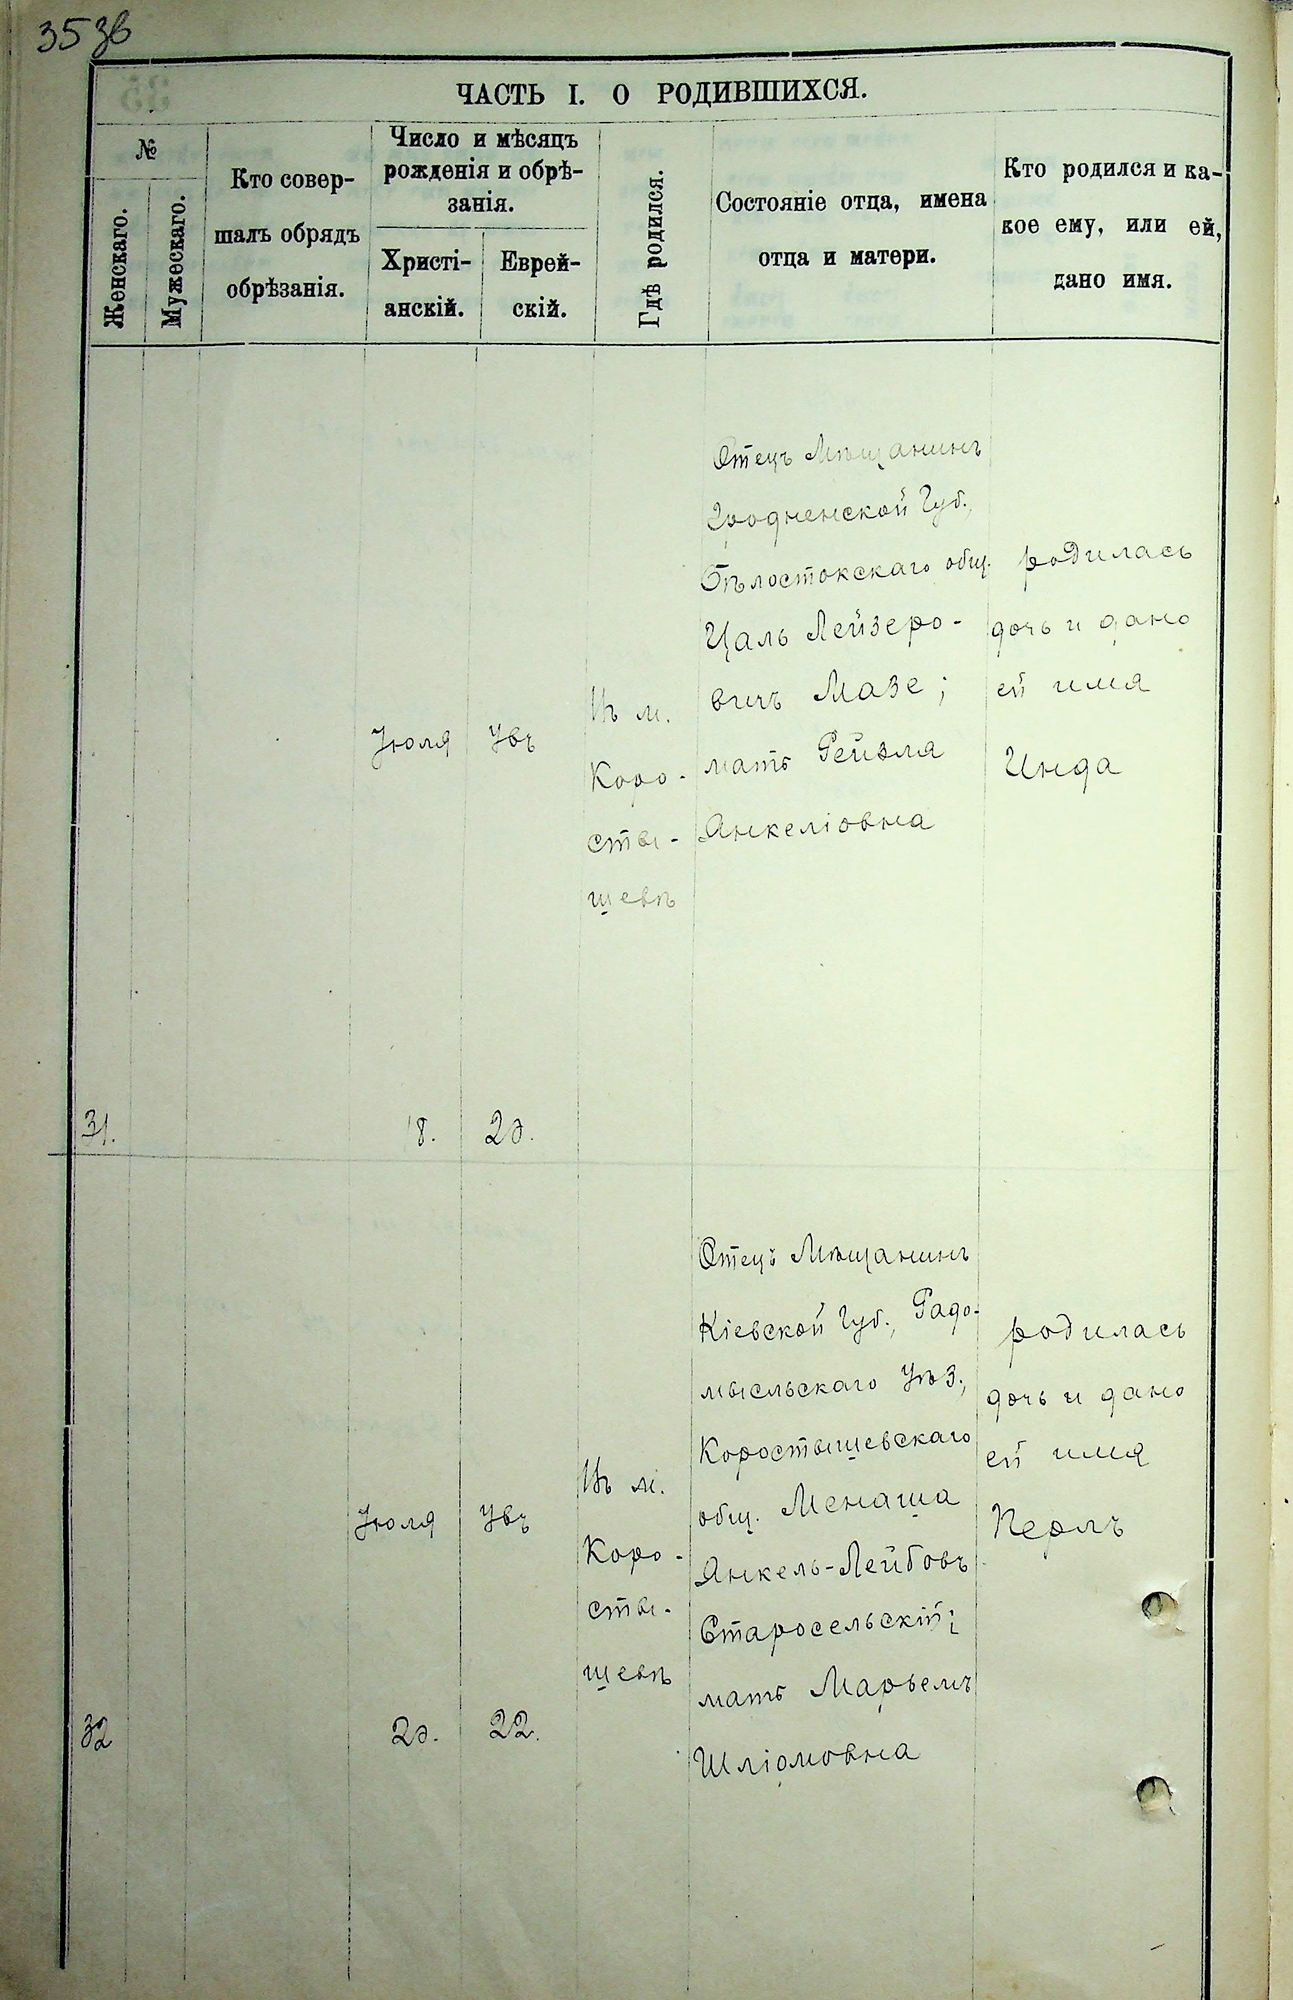 35 зв
ЧАСТЬ I. О РОДИВШИХСЯ.
№
Женскаго.
Мужескаго.
Кто совер-
шалъ обрядъ
обрѣзанія.
Число и мѣсяцъ
рожденія и обрѣ-
занія.
Христі-
анскій.
Еврей-
скій.
Гдѣ родился.
Состояніе отца, имена
отца и матери.
Кто родился и ка-
кое ему, или ей,
дано имя.
31.
Июля
18.
20.
Въ м.
Коро-
сты-
шевѣ
Отецъ Мѣщанинъ
Гродненской Губ.,
Бѣлостокскаго общ.
Цаль Лейзеро-
вичъ Мазе;
мать Рейзля
Янкеліовна
родилась
дочь и дано
ей имя
Инда
32
Июля
20.
22.
Въ м.
Коро-
сты-
шевѣ
Отецъ Мѣщанинъ
Кіевской Губ., Радо-
мысльскаго Уѣз.,
Коростышевскаго
общ. Менаша
Янкель-Лейбовъ
Старосельскій;
мать Марьемъ
Шліомовна
родилась
дочь и дано
ей имя
Перлъ